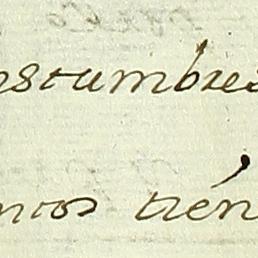 nstumbres
ntos tién